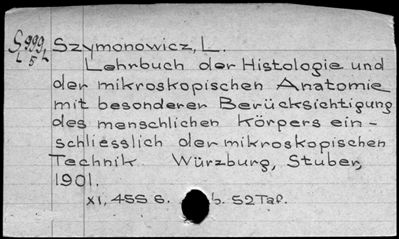 S999 Szymonowicz, L.
L 5 L Lehrbuch der Histologie und
der mikroskopischen Anatomie
mit besonderer Berücksichtigung
des menschlichen Körpers ein-
schliesslich der mikroskopischen
Technik Würzburg, Stuber,
1901.
XI, 455 S. b. 52 Taf.